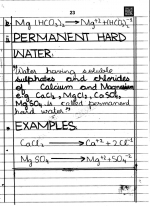 23
Mg(HCO₃)₂ → Mg⁺² + (HCO₃)₂⁻²
PERMANENT HARD
WATER:
"Water having soluble
sulphates and chlorides
of Calcium and Magnesium
e.g CaCl₂, MgCl₂, CaSO₄,
MgSO₄ is called permanent
hard water"
EXAMPLES
CaCl₂ → Ca⁺² + 2Cl⁻¹
MgSO₄ → Mg⁺² + SO₄⁻²